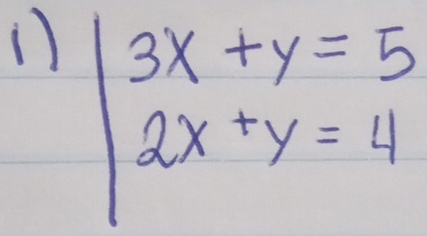 1) 3x + y = 5
2x + y = 4